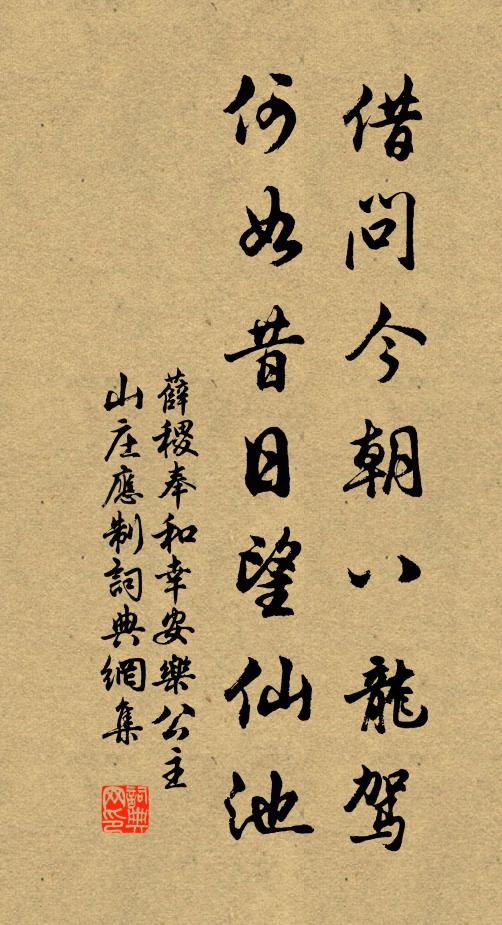 借問今朝八龍駕
何如昔日望仙池
薛稷奉和幸安樂公主
山庄應制詞典網集
詞典網印